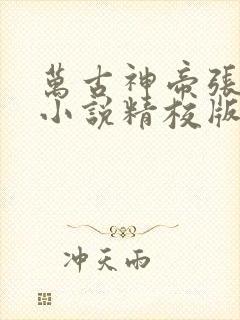 萬古神帝張
小說精校版
冲天雨